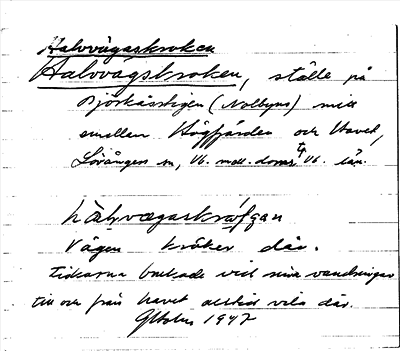 Halvvägaskroken
Halvvägskroken, ställe på
Björkåsstigen (Nolbyns) mitt
emellan Högfjärden och Havet,
Lövångers sn, Vb. mell. doms. Vb. län.
Vägen kröker där.
brukade vid sina vandringar
till och från havet alltid vila där.
1947